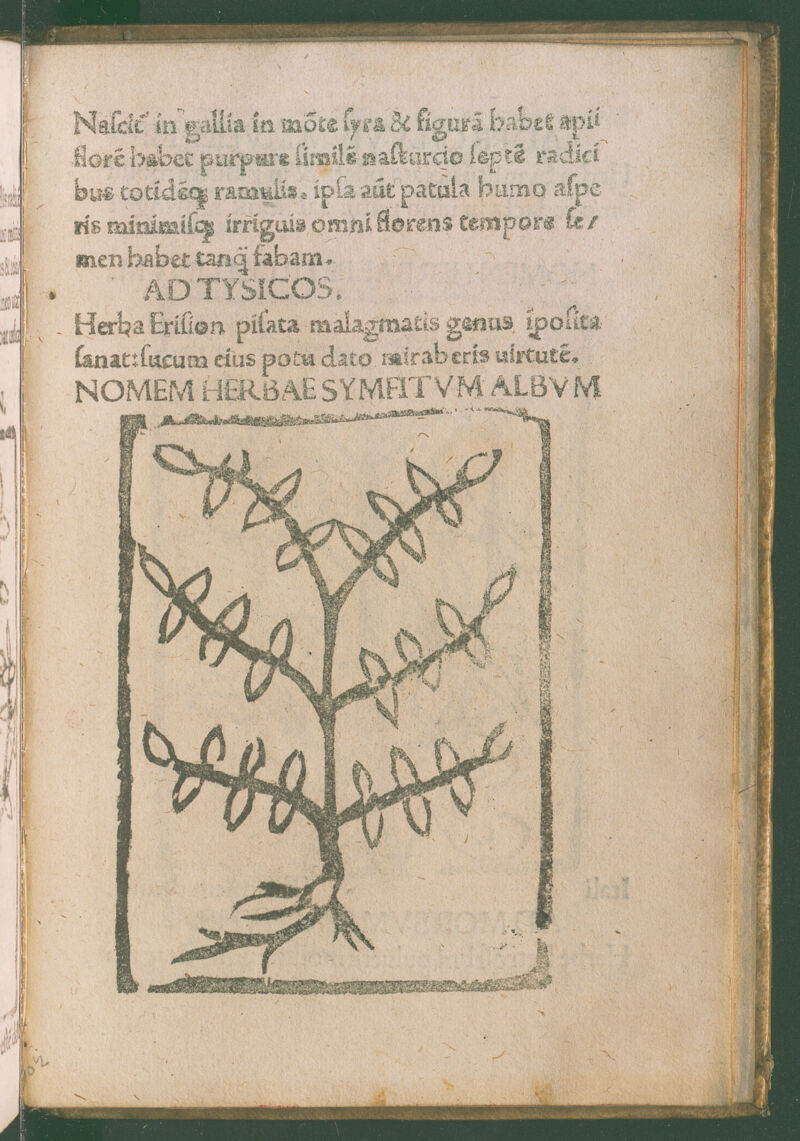 Naſcit᷑ in gallia in mõte ſyra & figurã habet apii
florẽ habet purpure ſimilẽ naſturcio ſeptẽ radici
bus totidẽqꝫ ramulis. ipſa aũt patula humo aſpe
ris minimiſqꝫ irriguis omni florens tempore ſe/
men habet tanq̃ fabam.
AD TYSICOS.
Herba Eriſion piſata malagmatis genus ĩpoſita
ſanat:ſucum eius potu dato miraberis uirtutẽ.
NOMEM HERBAE SYMFITVM ALBVM